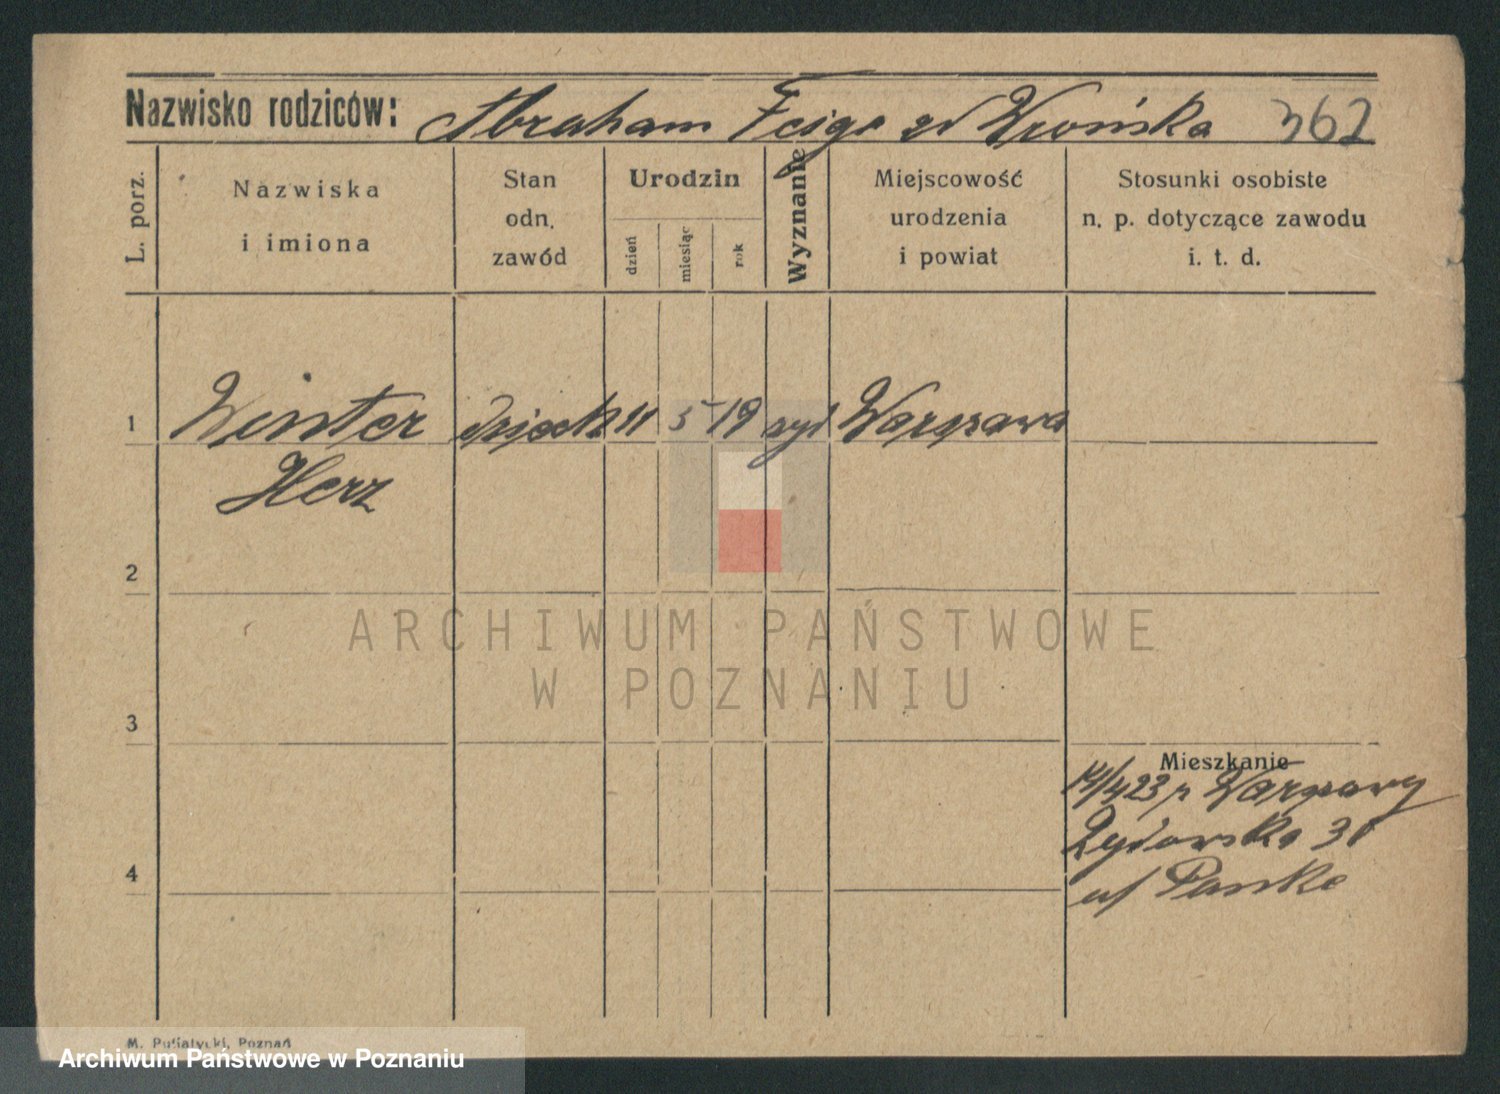 Nazwisko rodziców: Abraham Feige zd Wrońska 362
L. porz.
Nazwiska
i imiona
Stan
odn.
zawód
Urodzin
dzień
miesiąc
rok
Wyznanie
Miejscowość
urodzenia
i powiat
Stosunki osobiste
n. p. dotyczące zawodu
i. t. d.
1 Winter dziecko 11 5 19 żyd Warszawa
Herz
2
3
4
Mieszkanie
14/4 23 z Warszawy
Żydowska 31
u/ Panke
ARCHIWUM PAŃSTWOWE
W POZNANIU
M. Putiatycki, Poznań
Archiwum Państwowe w Poznaniu